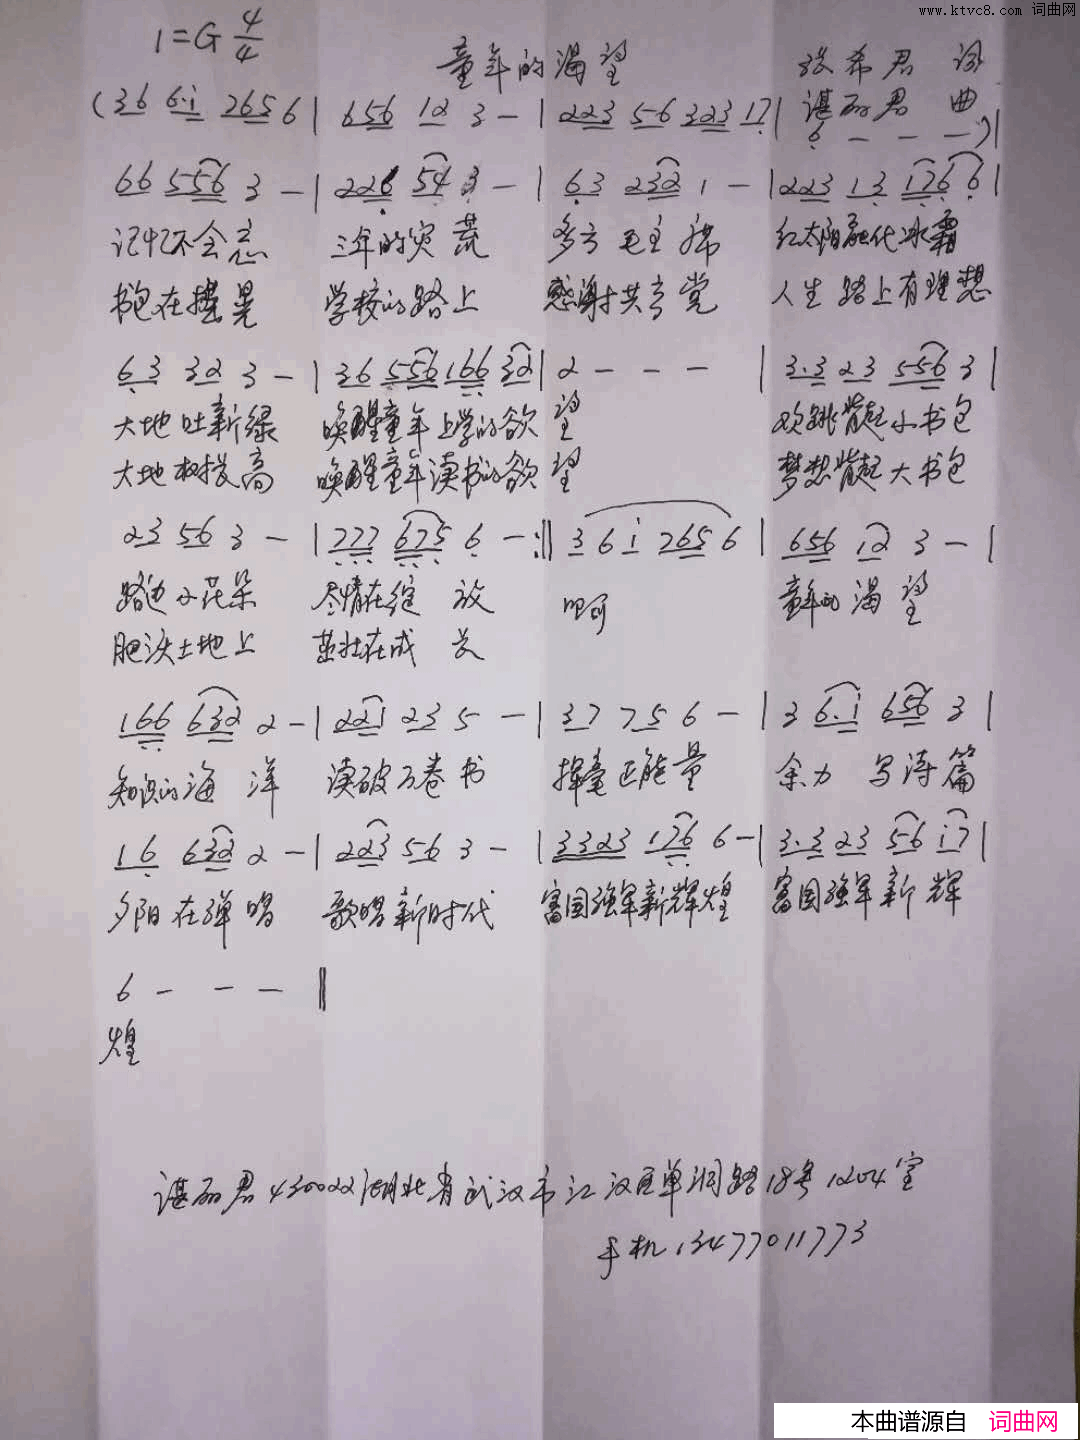 www.ktvc8.com 词曲网
1=G 4/4
童年的渴望 张希君 词
谌丽君 曲
(36 6·i 2656 | 656 12 3 - | 223 56 323 17 | 6 - - -) |
66 556 3 - | 226 54 3 - | 63 232 1 - | 223 13 176 6 |
记忆不会忘 三年的灾荒 多亏毛主席 红太阳融化冰霜
书包在摇晃 学校的路上 感谢共产党 人生路上有理想
63 32 3 - | 36 556 166 32 | 2 - - - | 3·3 23 556 3 |
大地吐新绿 唤醒童年上学的欲 望 欢跳背起小书包
大地树拔高 唤醒童年读书的欲 望 梦想背起大书包
23 56 3 - | 777 675 6 - :‖ 3 6 i 265 6 | 656 i2 3 - |
路边小花朵 尽情在绽 放 啊 童年的渴望
肥沃土地上 茁壮在成 长
166 632 2 - | 221 23 5 - | 37 75 6 - | 3 6·i 656 3 |
知识的海洋 读破万卷书 挥毫正能量 余力写诗篇
16 632 2 - | 223 56 3 - | 3323 176 6 - | 3·3 23 56 i7 |
夕阳在弹唱 歌唱新时代 富国强军新辉煌 富国强军新辉
6 - - - ‖
煌
谌丽君430022湖北省武汉市江汉区单洞路18号1204室
手机13477011773
本曲谱源自 词曲网